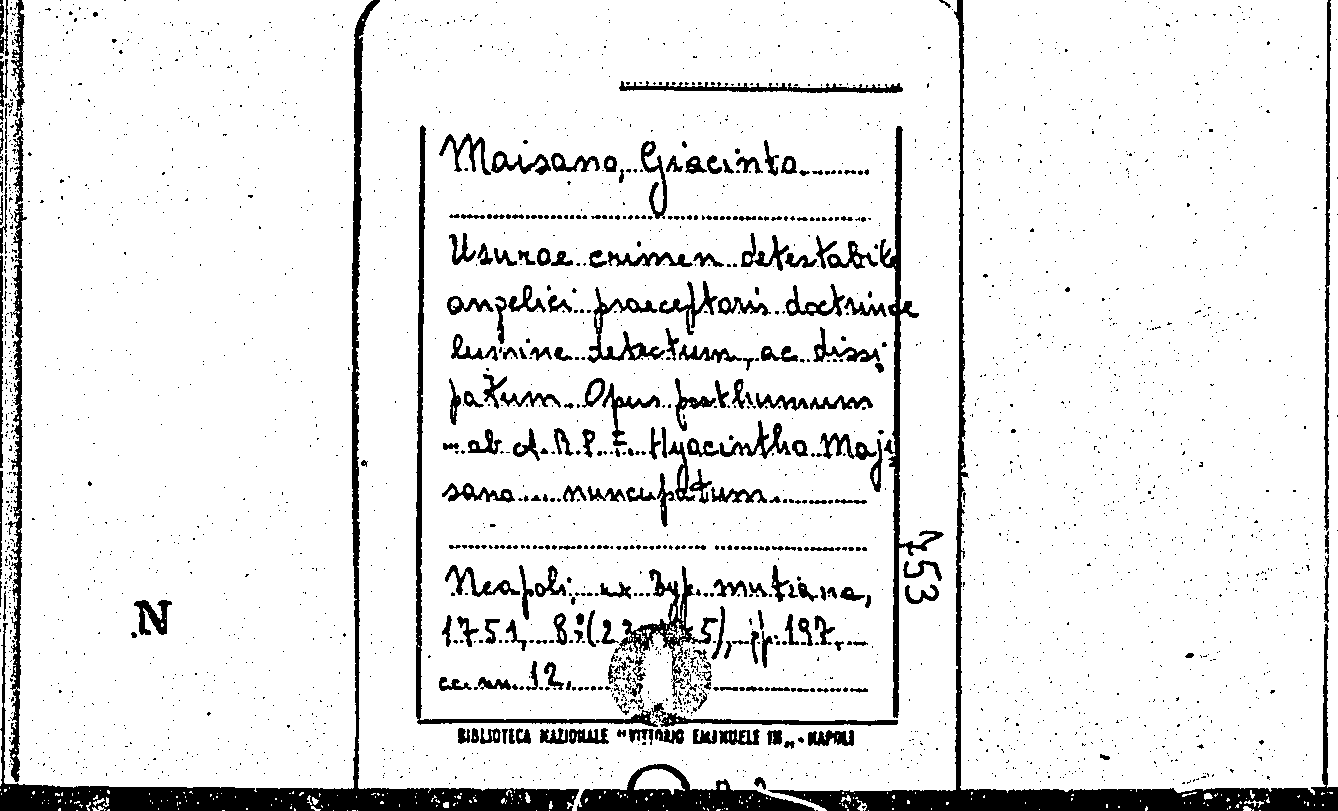 Maisano, Giacinto
Usurae crimen detestabile
angelici praeceptoris doctrinae
lumine detectum, ac dissi
patum. Opus posthumum
... ab A. R. P. F. Hyacintho Maji
sano ... nuncupatum.
Neapoli, ex Typ. mutiana,
1751, 8.° (23 5), pp. 197,
cc. nn. 12.
BIBLIOTECA NAZIONALE "VITTORIO EMANUELE III" - NAPOLI
753
N